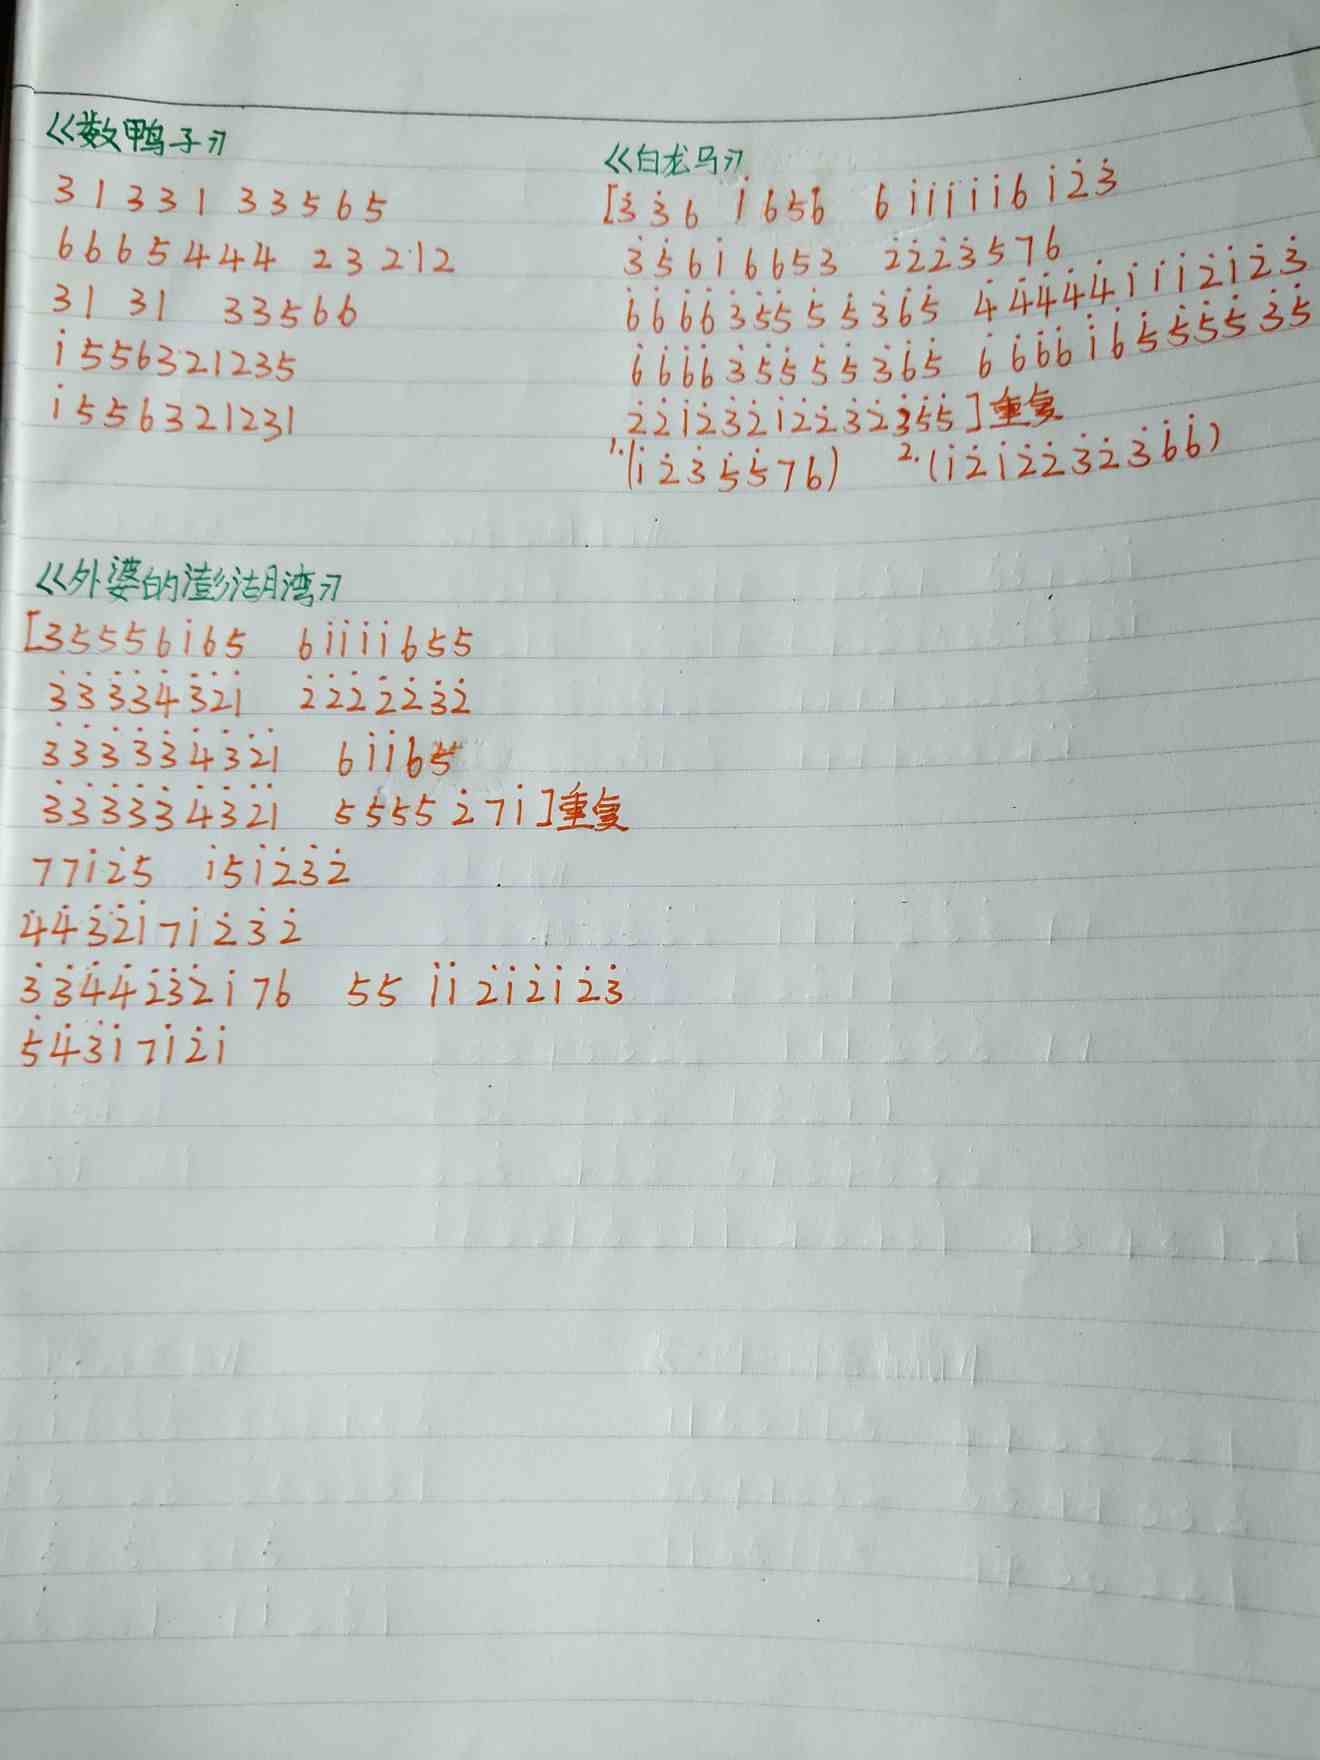 《数鸭子》
3 1 3 3 1 3 3 5 6 5
6 6 6 5 4 4 4 2 3 2 1 2
3 1 3 1 3 3 5 6 6
i 5 5 6 3 2 1 2 3 5
i 5 5 6 3 2 1 2 3 1
《白龙马》
[3̇ 3̇ 6 i 6 5 6 6 i i i i i 6 i 2̇ 3̇
3̇ 5̇ 6 i 6 6 5 3 2̇ 2̇ 2̇ 3̇ 5 7 6
6̇ 6̇ 6̇ 6̇ 3̇ 5̇ 5̇ 5̇ 5̇ 3̇ 6̇ 5̇ 4̇ 4̇ 4̇ 4̇ 4̇ i i i 2̇ i 2̇ 3̇
6̇ 6̇ 6̇ 6̇ 3̇ 5̇ 5̇ 5̇ 5̇ 3̇ 6̇ 5̇ 6̇ 6̇ 6̇ 6̇ i 6̇ 5̇ 5̇ 5̇ 5̇ 3̇ 5̇
2̇ 2̇ i 2̇ 3̇ 2̇ i 2̇ 2̇ 3̇ 2̇ 3̇ 5̇ 5̇ ]重复
1.(i 2̇ 3̇ 5̇ 5̇ 7 6) 2.(i 2̇ i 2̇ 2̇ 3̇ 2̇ 3̇ 6̇ 6̇)
《外婆的澎湖湾》
[3 5 5 5 6 i 6 5 6 i i i i 6 5 5
3̇ 3̇ 3̇ 3̇ 4̇ 3̇ 2̇ i 2̇ 2̇ 2̇ 2̇ 2̇ 3̇ 2̇
3̇ 3̇ 3̇ 3̇ 3̇ 4̇ 3̇ 2̇ i 6 i i 6 5
3̇ 3̇ 3̇ 3̇ 3̇ 4̇ 3̇ 2̇ i 5 5 5 5 2̇ 7 i ]重复
7 7 i 2̇ 5 i 5 i 2̇ 3̇ 2̇
4̇ 4̇ 3̇ 2̇ i 7 i 2̇ 3̇ 2̇
3̇ 3̇ 4̇ 4̇ 2̇ 3̇ 2̇ i 7 6 5 5 i i 2̇ i 2̇ i 2̇ 3̇
5̇ 4̇ 3̇ i 7 i 2̇ i